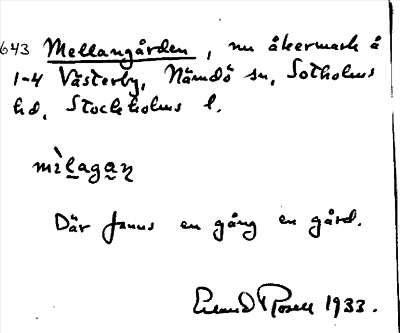 643 Mellangården, nu åkermark å
1-4 Västerby, Nämdö sn, Sotholms
hd, Stockholms l.
mèlagaɳ
Där fanns en gång en gård.
Erland Rosell 1933.